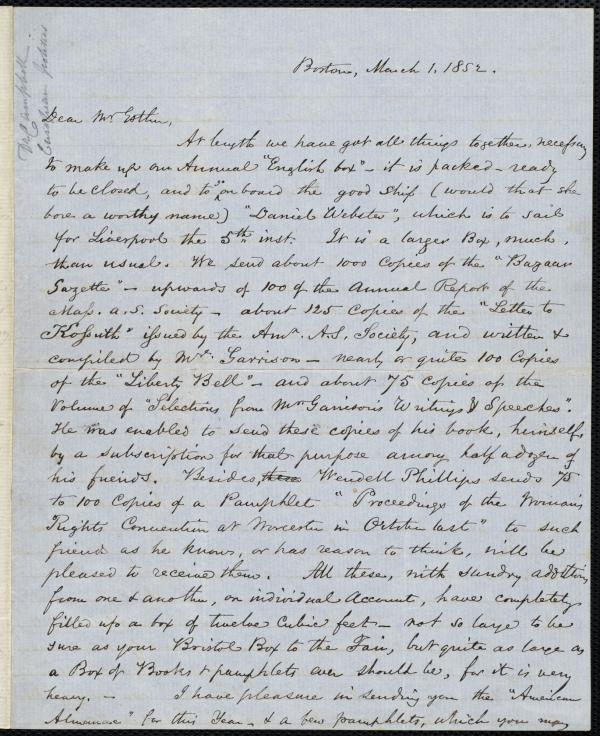 Mr. Campbell
Boston, March 1, 1852.
Dear Mr Estlin,
At length we have got all things together, necessary
to make up our Annual "English box" - it is packed - ready
to be closed, and to on board the good ship (would that she
bore a worthy name) "Daniel Webster", which is to sail
for Liverpool the 5th inst. It is a larger Box, much,
than usual. We send about 1000 Copies of the "Bazaar
Gazette" - upwards of 100 of the Annual Report of the
Mass. A.S. Society - about 125 Copies of the "Letter to
Kossuth" issued by the Amn. A.S. Society, and written &
compiled by Mr. Garrison - nearly or quite 100 Copies
of the "Liberty Bell" - and about 75 copies of the
Volume of "Selections from Mr Garrison's Writings & Speeches".
He was enabled to send these copies of his book, himself,
by a subscription for that purpose among half a dozen of
his friends. Besides, there Wendell Phillips sends 75
to 100 Copies of a Pamphlet "Proceedings of the Woman's
Rights Convention at Worcester in October last" to such
friends as he knows, or has reason to think, will be
pleased to receive them. All these, with sundry additions
from one & another, on individual Account, have completely
filled up a box of twelve cubic feet - not so large to be
sure as your Bristol Box to the Fair, but quite as large as
a Box of Books & pamphlets ever should be, for it is very
heavy. - I have pleasure in sending you the "American
Almanac" for this Year - & a few pamphlets, which you may